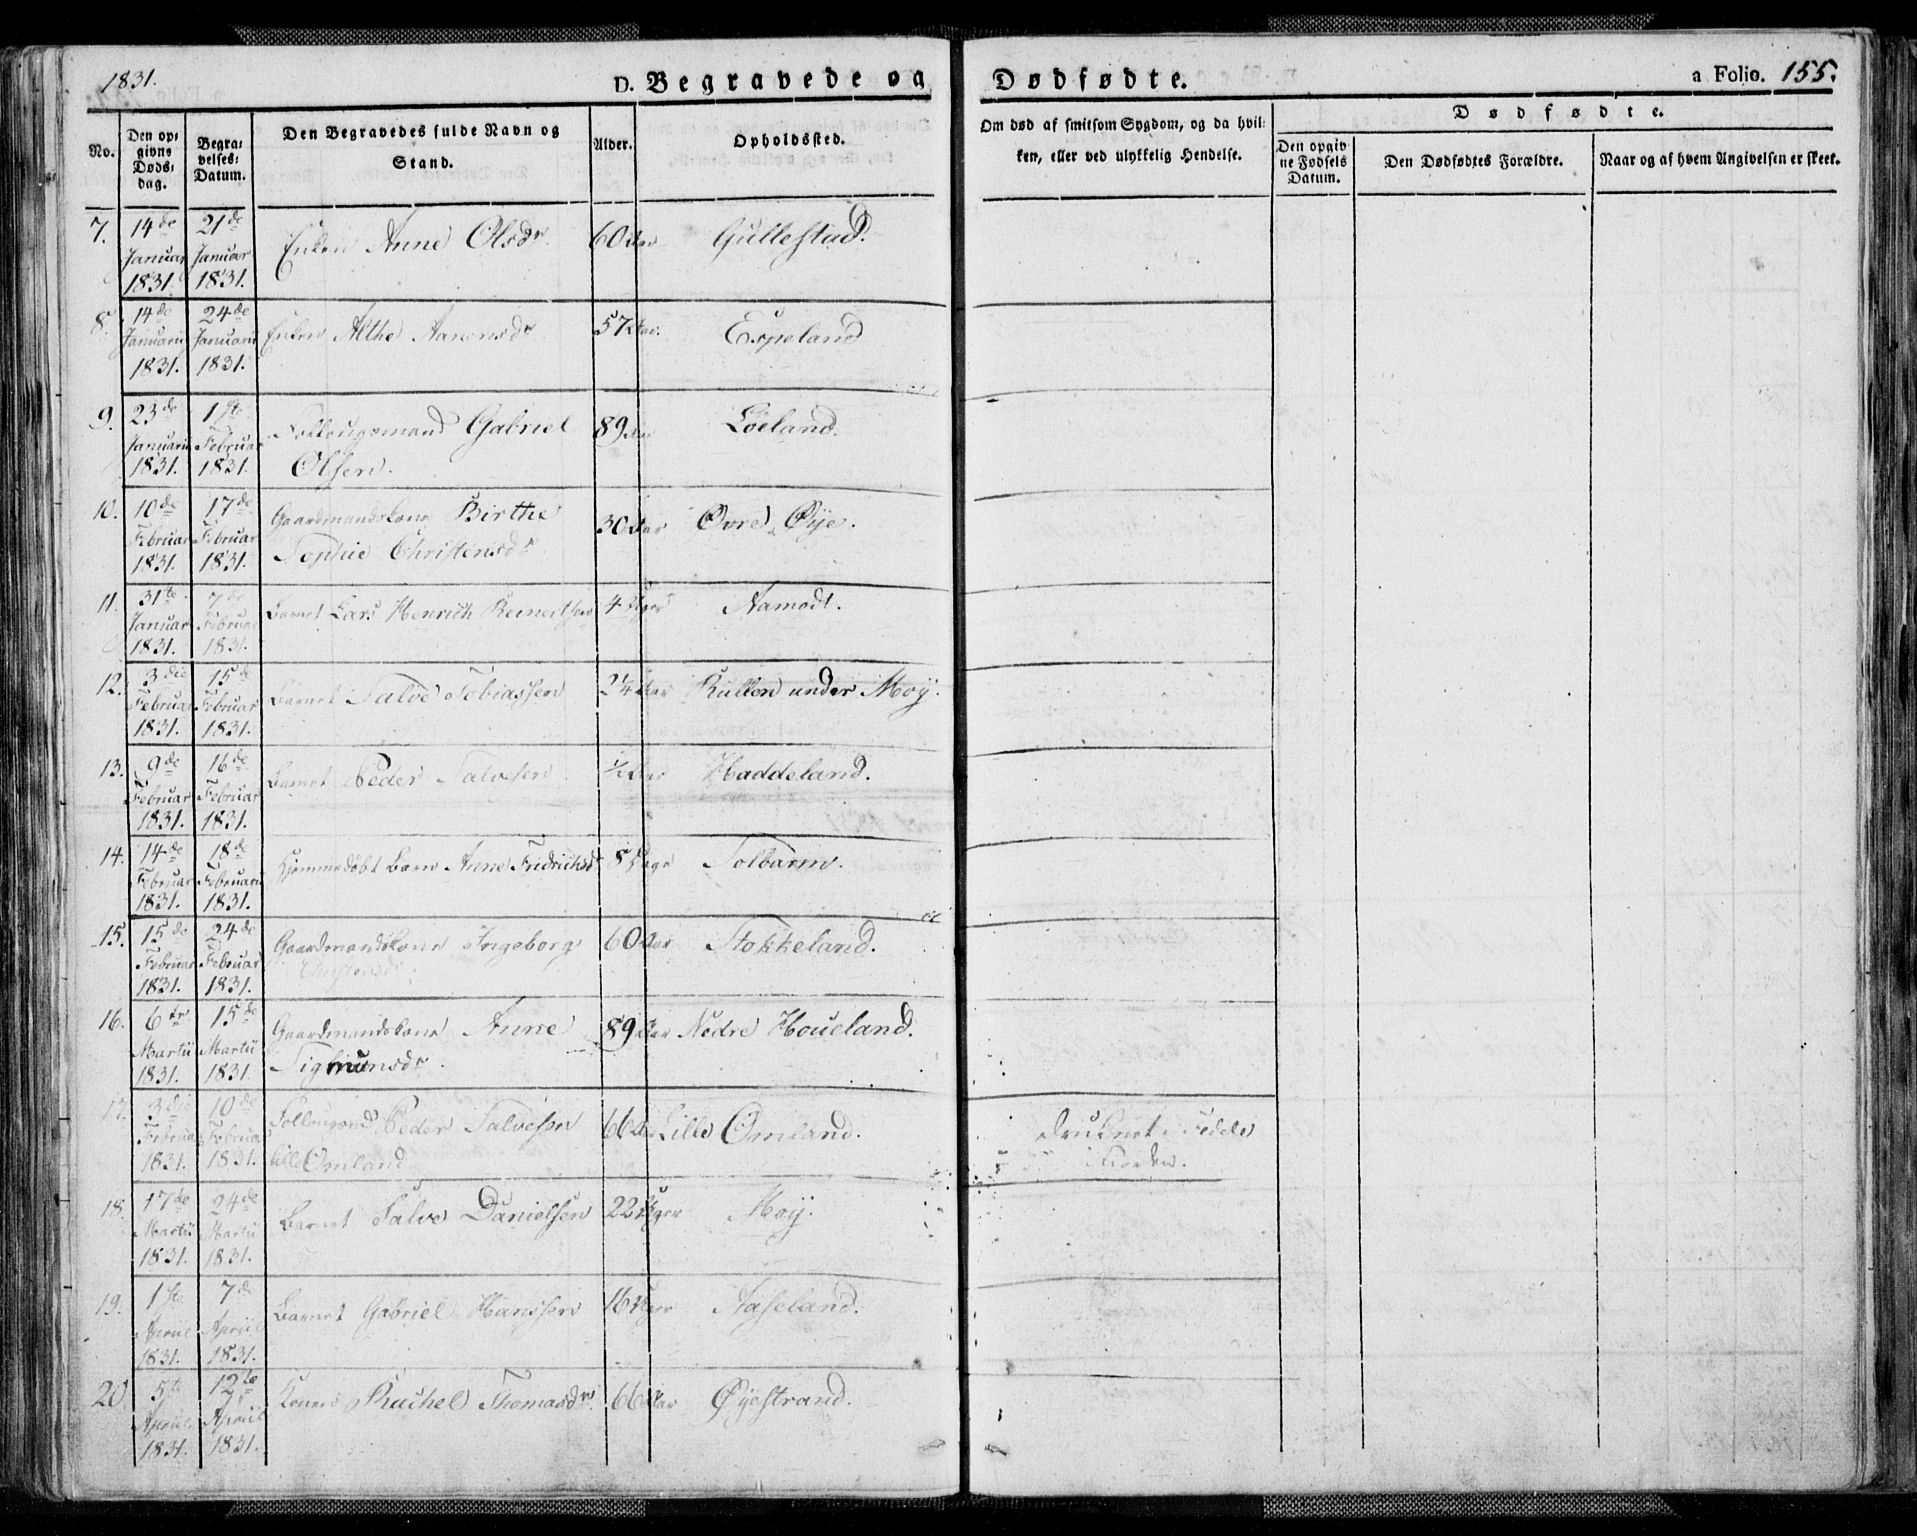 1831.
D. Begravede og
Dødfødte.
a Folio. 155.
No.
Den opgivne Døds-dag.
Begravelses-Datum.
Den Begravedes fulde Navn og Stand.
Alder.
Opholdssted.
Om død af smitsom Sygdom, og da hvilken, eller ved ulykkelig Hendelse.
Dødfødte.
Den opgivne Fødsels Datum.
Den Dødfødtes Forældre.
Naar og af hvem Angivelsen er skeet.
7. 14de Januar 1831. 21de Januar 1831. Enken Anne Olsdr. 60 Aar Gullestad.
8. 14de Januarii 1831. 24de Januarii 1831. Enken Althe Aanensdr 57 Aar. Espeland
9. 23de Januarii 1831. 1ste Februar 1831. Follougsmand Gabriel
Olsen. 89 Aar Løeland.
10. 10de Februar 1831. 17de Februar 1831. Gaardmandskone Birthe
Sophie Christensdr 30 Aar Øvre Øÿe.
11. 31te Januar 1831. 7de Februar 1831. Barnet Lars Henrich Reinertsen 4 Uger Aamodt.
12. 3die Februar 1831. 15de Februar 1831. Barnet Salve Tobiassen 2 1/4 Aar Kullen under Moÿ.
13. 9de Februar 1831. 16de Februar 1831. Barnet Peder Salvesen. 1/2 Aar Haddeland.
14. 14de Februar 1831. 18de Februarii 1831. Hjemmedøbt Barn Anne Fridrichsdr 8 Dage Solbarm.
15. 15de Februar 1831. 24de Februar 1831. Gaardmandskone Ingeborg
Christensdr. 60 Aar Stokkeland.
16. 6te Martii 1831. 15de Martii 1831. Gaardmandskone Anne
Sigmunsdr. 89 Aar Nedre Houeland.
17. 3die Februar 1831. 10de Februar 1831. Peder Salvesen
lille Omland 66 Aar Lille Omland. druknet i Fedde
Fiorden.
18. 17de Martii 1831. 24de Martii 1831. Barnet Salve Danielsen 22 Uger Moÿ.
19. 1ste April 1831. 7de April 1831. Barnet Gabriel Hanssen 16 Uger Aaseland.
20. 5te April 1831. 12te April 1831. Konen Rachel Thomasdr. 66 Aar Øÿestrand.